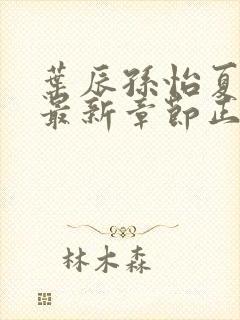 葉辰孫怡夏
最新章節正
林木森